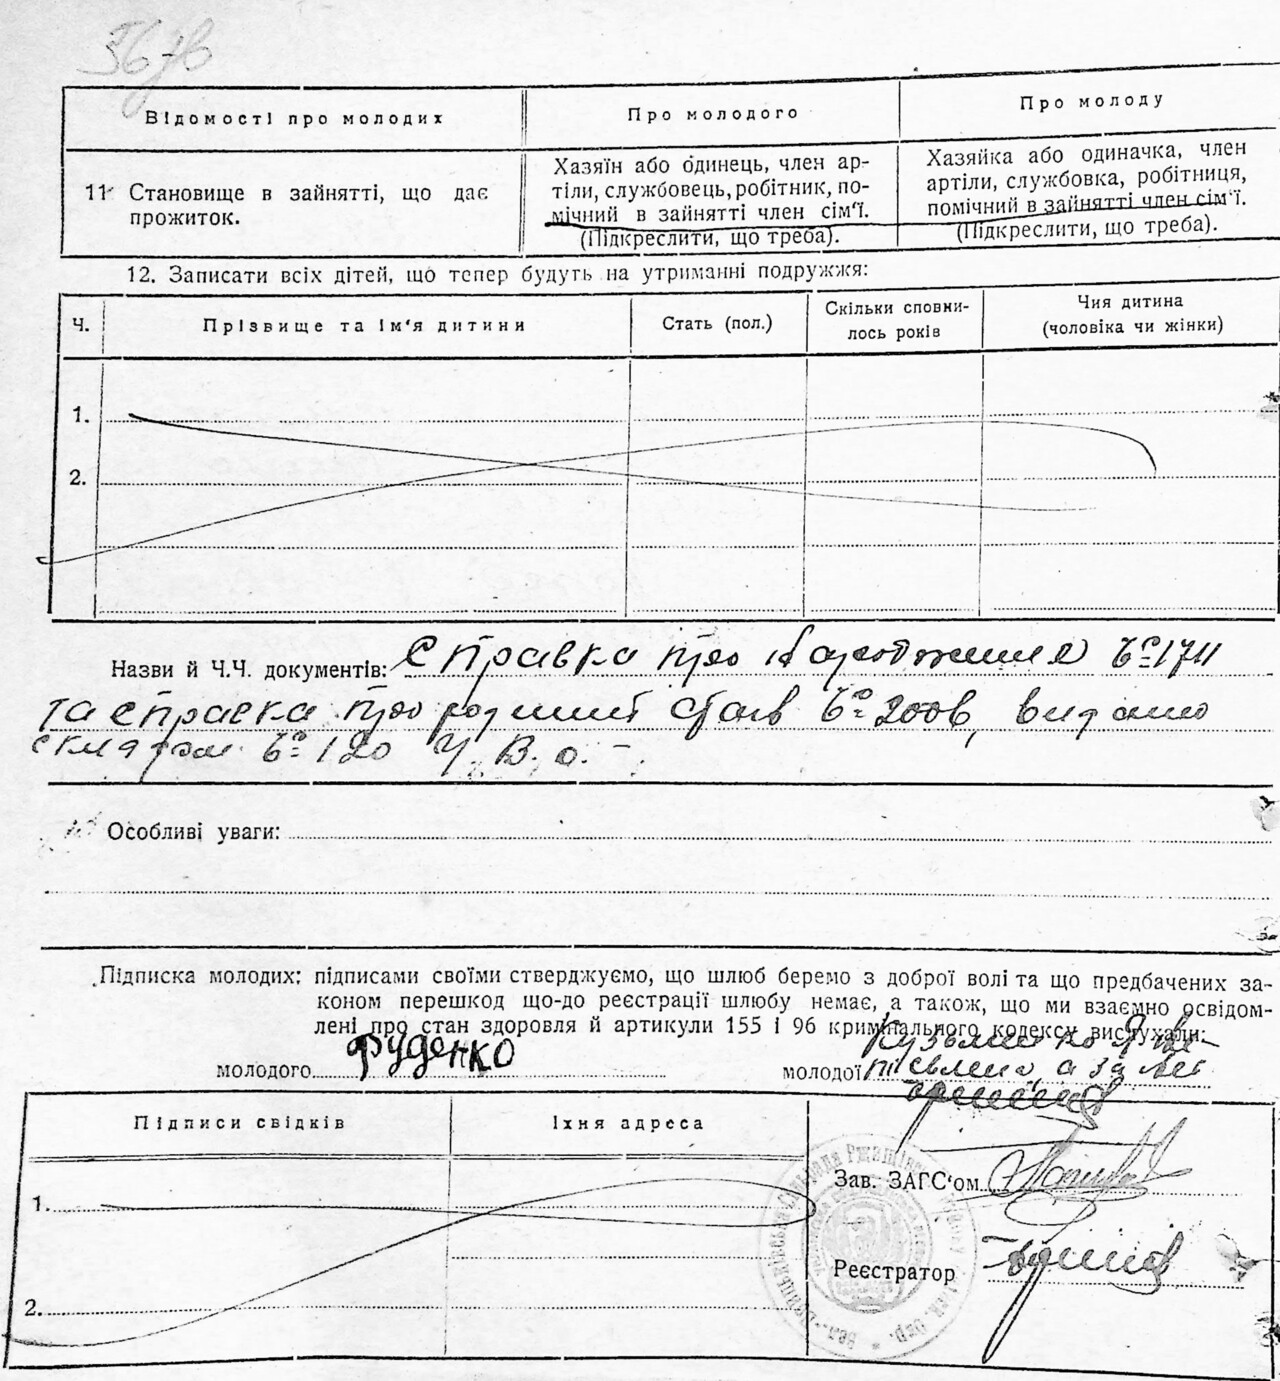 56 зв
Відомості про молодих
Про молодого
Про молоду
11 Становище в зайнятті, що дає
прожиток.
Хазяїн або одинець, член ар-
тіли, службовець, робітник, по-
мічний в зайнятті член сім'ї.
(Підкреслити, що треба).
Хазяйка або одиначка, член
артіли, службовка, робітниця,
помічний в зайнятті член сім'ї.
(Підкреслити, що треба).
12. Записати всіх дітей, що тепер будуть на утриманні подружжя:
Ч.
Прізвище та ім'я дитини
Стать (пол.)
Скільки сповни-
лось років
Чия дитина
(чоловіка чи жінки)
1.
2.
Назви й Ч.Ч. документів: Справка про народження 1711
та справка про родиний стан 2006, видано
120
Особливі уваги:
Підписка молодих: підписами своїми стверджуємо, що шлюб беремо з доброї волі та що предбачених за-
коном перешкод що-до реєстрації шлюбу немає, а також, що ми взаємно освідом-
лені про стан здоровля й артикули 155 і 96 кримінального кодексу вислухали:
молодого Руденко
молодої Кузьменко
Підписи свідків
Їхня адреса
1.
2.
Зав. ЗАГС'ом
Реєстратор